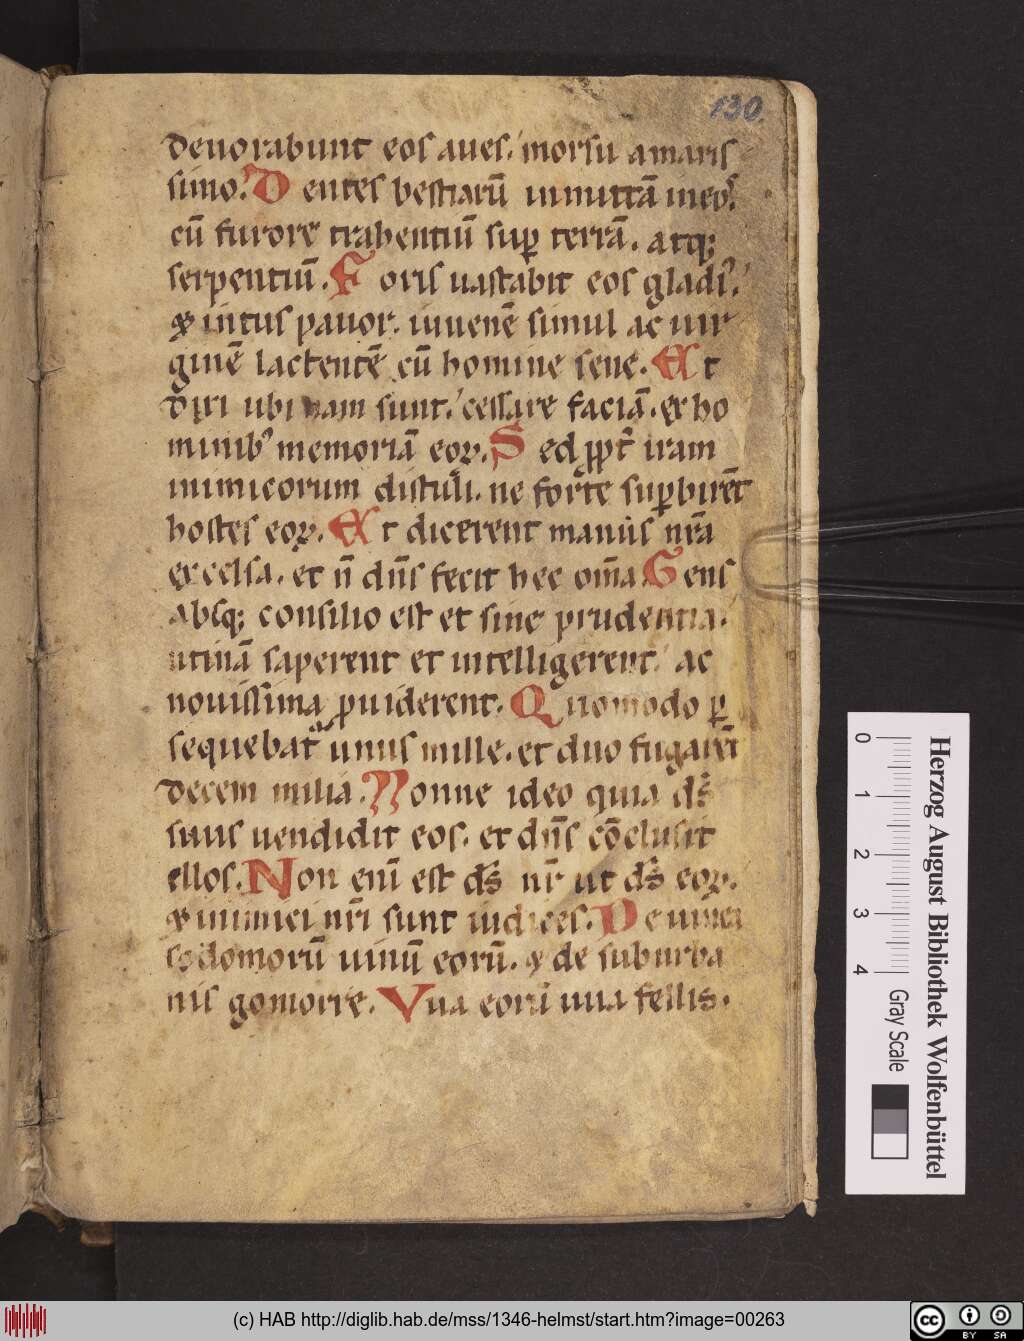 130
deuorabunt eos aues. morsu amaris
simo. Dentes bestiarū inmittā ineoꝰ.
cū furore trahentiū suꝑ terrā. atqꝫ
serpentiū. Foris uastabit eos gladiꝰ.
⁊ intus pauor. iuuenē simul ac uir
ginē lactentē cū homine sene. Et
dixi ubi nam sunt. cessare faciā. ex ho
minibꝰ memoriā eoꝝ. Sed ꝓpt̄ iram
inimicorum distuli. ne forte suꝑbirēt
hostes eoꝝ. Et dicerent manus nr̄a
excelsa. et n̄ dn̄s fecit hec om̄a. Gens
absqꝫ consilio est et sine prudentia.
utinā saperent et intelligerent ac
nouissima ꝓuiderent. Quomodo ꝑ
sequebat᷑ unus mille. et duo fugarēt
decem milia. Nonne ideo quia ds̄
suus uendidit eos. et dn̄s cōclusit
ellos. Non enī est ds̄ nr̄ ut ds̄ eoꝝ.
⁊ inimici nr̄i sunt iudices. De uinea
sodomorū uinū eorū. ⁊ de suburba
nis gomorre. Vua eorū uua fellis.
0 1 2 3 4
Gray Scale
Herzog August Bibliothek Wolfenbüttel
(c) HAB http://diglib.hab.de/mss/1346-helmst/start.htm?image=00263
cc BY SA